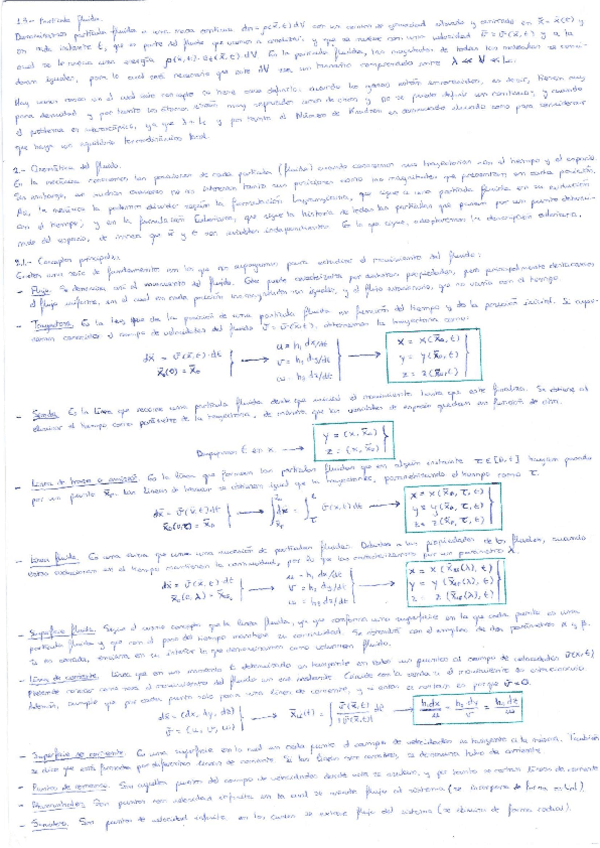 1.3.- Partícula fluida.
Denominamos partícula fluida a una masa continua dm = ρ(x̄,t) dV con un volumen elevado y centrado en x̄ = x̄(t) y
en cada instante t, que es parte del fluido que vamos a analizar, y que se mueve con una velocidad v̄ = v̄(x̄,t) y a la
cual se le asocia una energía En la partícula fluida, las magnitudes de todas las moléculas se consi-
deran iguales, para lo cual será necesario que este dV sea un tamaño comprendido entre λ ≪ ≪ Lc.
Hay unos casos en el cual este concepto no tiene cabida: cuando los gases están enrarecidos, es decir, tienen muy
poca densidad y por tanto los átomos están muy separados unos de otros y no se puede definir un continuo, y cuando
el problema es microscópico, ya que λ ≈ Lc y por tanto el Número de Knudsen es demasiado elevado como para considerar
que haya un equilibrio termodinámico local.
2.- Cinemática del fluido.
En la mecánica conocemos las posiciones de cada partícula (fluida) cuando conocemos sus trayectorias con el tiempo y el espacio.
Sin embargo, en muchas ocasiones no nos interesan tanto sus posiciones como las magnitudes que presentan en cada posición.
Así, la mecánica la podremos describir según la formulación Lagrangiana, que sigue a una partícula fluida en su evolución
con el tiempo; y en la formulación Euleriana, que sigue la historia de todas las partículas que pasan por un punto determi-
nado del espacio, de manera que x̄ y t son variables independientes. En lo que sigue, adoptaremos la descripción euleriana.
2.1.- Conceptos principales.
Existen una serie de fundamentos en los que nos apoyaremos para estudiar el movimiento del fluido:
- Flujo. Se denomina así al movimiento del fluido. Este puede caracterizarse por distintas propiedades, pero principalmente destacamos
el flujo uniforme, en el cual en cada posición las magnitudes son iguales, y el flujo estacionario, que no varía con el tiempo.
- Trayectoria. Es la ley que da la posición de una partícula fluida en función del tiempo y de la posición inicial. Si supo-
nemos conocido el campo de velocidades del fluido v̄ = v̄(x̄,t), obtenemos la trayectoria como:
dx̄ = v̄(x̄,t)·dt
x̄(0) = x̄₀
u = h₁ dx/dt
v = h₂ dy/dt
w = h₃ dz/dt
x = x(x̄₀,t)
y = y(x̄₀,t)
z = z(x̄₀,t)
- Senda. Es la línea que recorre una partícula fluida desde que inicia el movimiento hasta que este finaliza. Se obtiene al
eliminar el tiempo como parámetro de la trayectoria, de manera que las variables de espacio quedan en función de otra.
Despejamos t en x
y = (x, x̄₀)
z = (x, x̄₀)
- Línea de traza o emisión. Es la línea que forman las partículas fluidas que en algún instante τ ∈ [0,t] hayan pasado
por un punto x̄ₚ. Las líneas de traza se obtienen igual que la trayectoria, parametrizando el tiempo como τ.
dx̄ = v̄(x̄,t)dt
∫dx̄ = ∫v̄(x̄,t)dt
x = x(x̄ₚ, τ, t)
y = y(x̄ₚ, τ, t)
z = z(x̄ₚ, τ, t)
- Línea fluida. Es una curva que une una sucesión de partículas fluidas. Debido a las propiedades de los fluidos, cuando
estas evolucionan en el tiempo mantienen la continuidad, por lo que las caracterizamos por un parámetro λ.
dx̄ = v̄(x̄,t)dt
u = h₁ dx/dt
v = h₂ dy/dt
w = h₃ dz/dt
- Superficie fluida. Sigue el mismo concepto que la línea fluida, ya que conforma una superficie en la que cada punto es una
partícula fluida y que con el paso del tiempo mantiene su continuidad. Se obtendrá con el empleo de dos parámetros α y β.
Si es cerrada, encierra en su interior lo que denominamos como volumen fluido.
- Línea de corriente. Línea que en un momento t determinado es tangente en todos sus puntos al campo de velocidades v̄(x̄,t).
Permite conocer como será el movimiento del fluido en ese instante. Coincide con la senda si el movimiento es estacionario.
Además, cumple que por cada punto solo pasa una línea de corriente, y si estas se cortan es porque v̄ = 0.
dx̄ = (dx, dy, dz)
v̄ = (u, v, w)
h₁dx/u = h₂dy/v = h₃dz/w
- Superficie de corriente. Es una superficie en la cual en cada punto el campo de velocidades es tangente a la misma. También
se dice que está formada por diferentes líneas de corriente. Si las líneas son cerradas, se denomina tubo de corriente.
- Puntos de remanso. Son aquellos puntos del campo de velocidades donde estas se anulan, y por tanto se cortan líneas de corriente.
- Son puntos con velocidad infinita en la cual se añade flujo al sistema (se incorpora de forma radial).
- Sumideros. Son puntos de velocidad infinita en los cuales se extrae flujo del sistema (se absorve de forma radial).